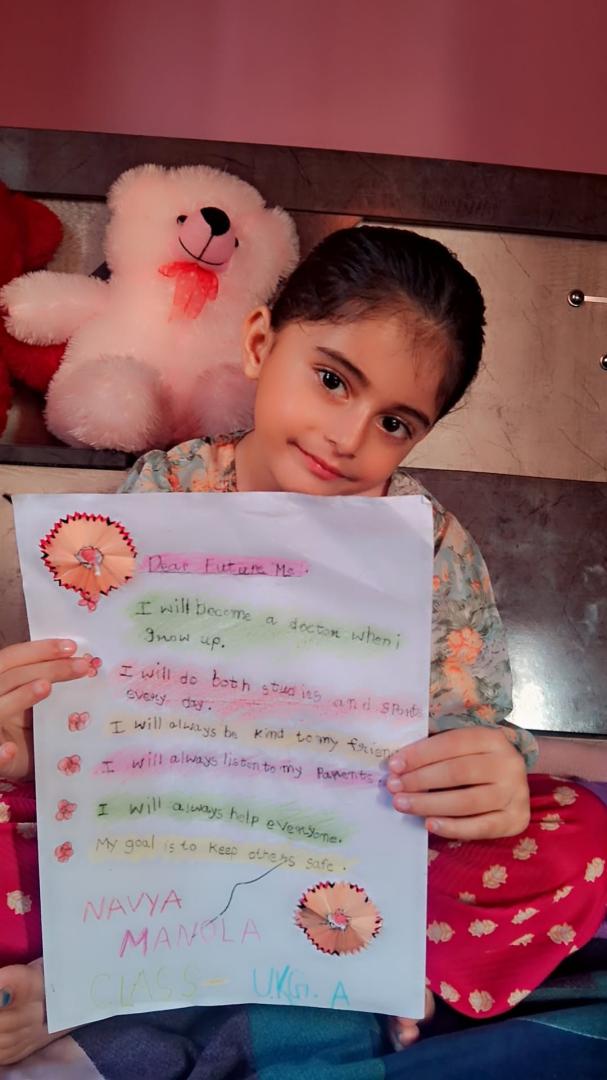 Dear Future Me.
I will become a doctor when i
grow up.
I will do both studies and sports
every day.
I will always be kind to my frien
I will always listen to my Parents.
I will always help everyone.
My goal is to keep others safe.
NAVYA
MANOLA
CLASS - U.K.G. A